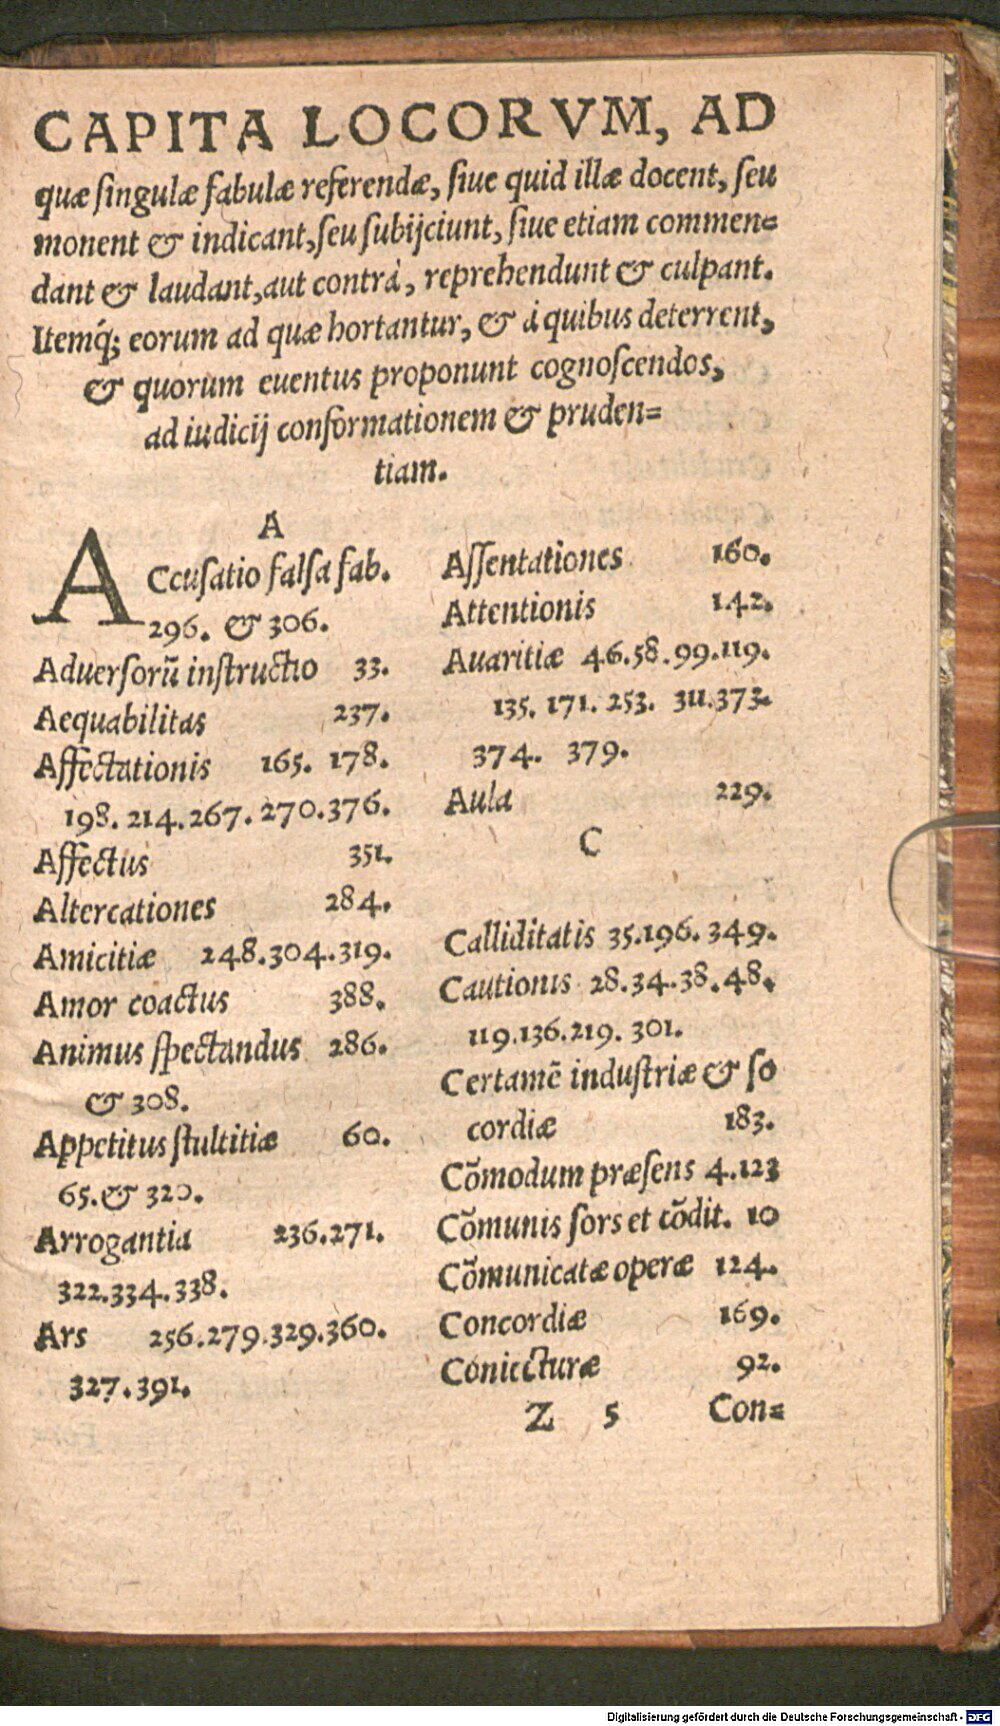 CAPITA LOCORVM, AD
quæ ſingulæ fabulæ referendæ, ſiue quid illæ docent, ſeu
monent & indicant, ſeu ſubijciunt, ſiue etiam commen=
dant & laudant, aut contrà, reprehendunt & culpant.
Itemq́; eorum ad quæ hortantur, & à quibus deterrent,
& quorum euentus proponunt cognoſcendos,
ad iudicij conformationem & pruden=
tiam.
A
ACcuſatio falſa fab.
296. & 306.
Aduerſorũ inſtructio 33.
Aequabilitas 237.
Affectationis 165. 178.
198. 214. 267. 270. 376.
Affectus 351.
Altercationes 284.
Amicitiæ 248. 304. 319.
Amor coactus 388.
Animus ſpectandus 286.
& 308.
Appetitus ſtultitiæ 60.
65. & 320.
Arrogantia 236. 271.
322. 334. 338.
Ars 256. 279. 329. 360.
327. 391.
Aſſentationes 160.
Attentionis 142.
Auaritiæ 46. 58. 99. 119.
135. 171. 253. 311. 373.
374. 379.
Aula 229.
C
Calliditatis 35. 196. 349.
Cautionis 28. 34. 38. 48.
119. 136. 219. 301.
Certamẽ induſtriæ & ſo
cordiæ 183.
Cõmodum præſens 4. 123
Cõmunis ſors et cõdit. 10
Cõmunicatæ operæ 124.
Concordiæ 169.
Coniecturæ 92.
Z 5 Con=
Digitalisierung gefördert durch die Deutsche Forschungsgemeinschaft - DFG